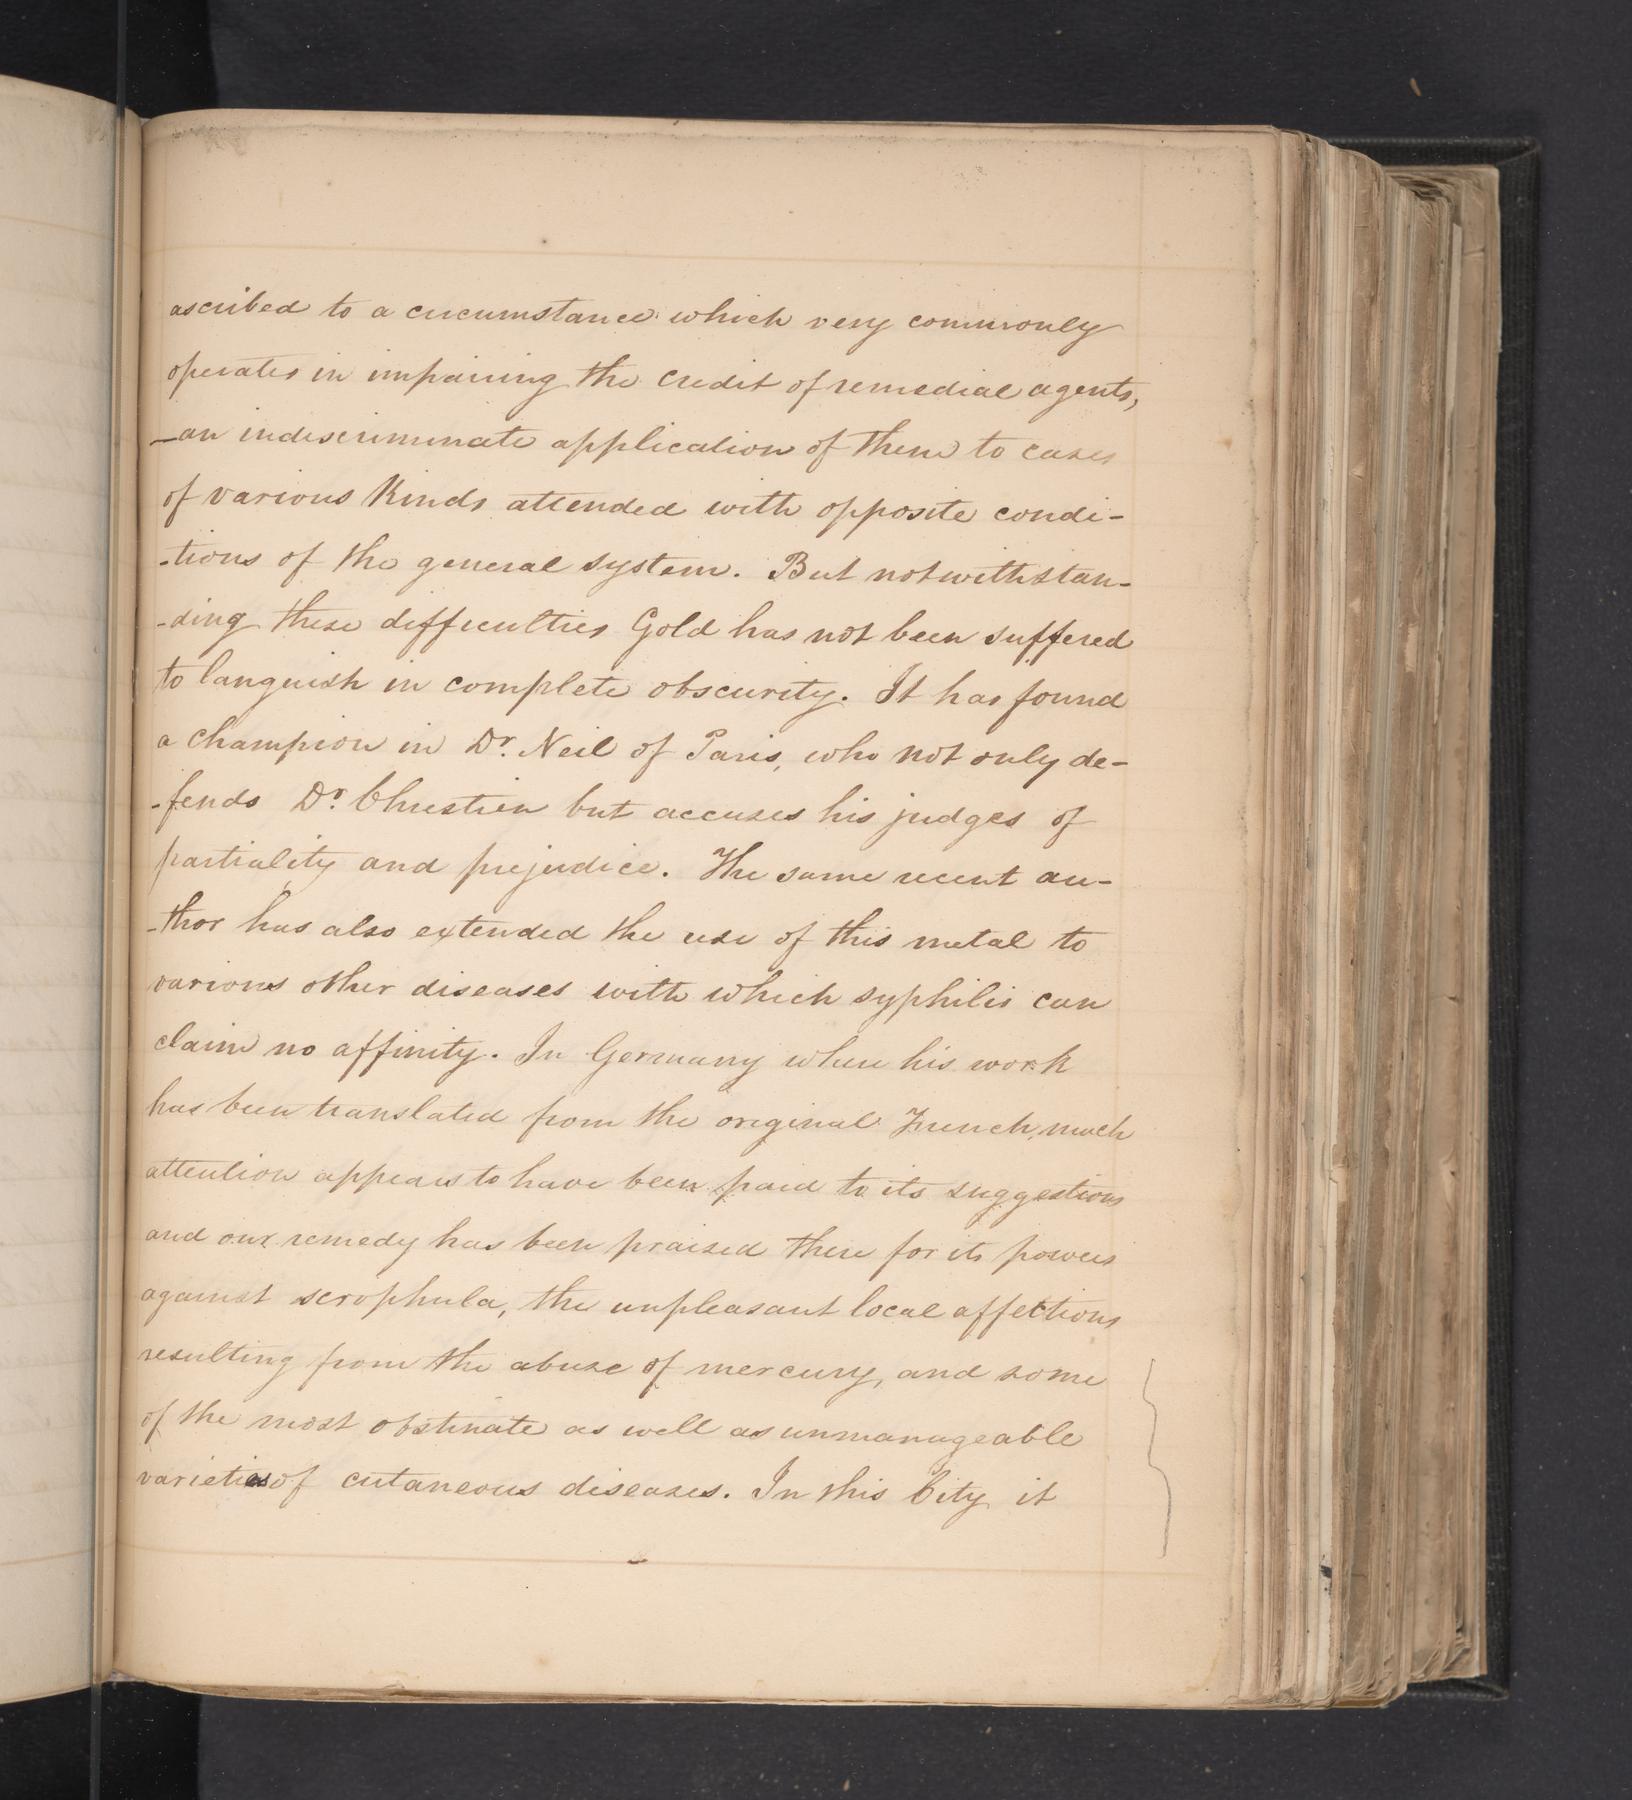 ascribed to a circumstance which very commonly
operates in impairing the credit of remedial agents,
—an indiscriminate application of them to cases
of various kinds attended with opposite condi-
-tions of the general system. But notwithstan-
-ding these difficulties Gold has not been suffered
to languish in complete obscurity. It has found
a champion in Dr. Neil of Paris, who not only de-
-fends Dr. Chrestien but accuses his judges of
partiality and prejudice. The same recent au-
-thor has also extended the use of this metal to
various other diseases with which syphilis can
claim no affinity. In Germany where his work
has been translated from the original French, much
attention appears to have been paid to its suggestions
and our remedy has been praised there for its powers
against scrophula, the unpleasant local affections
resulting from the abuse of mercury, and some
of the most obstinate as well as unmanageable
varieties of cutaneous diseases. In this City it